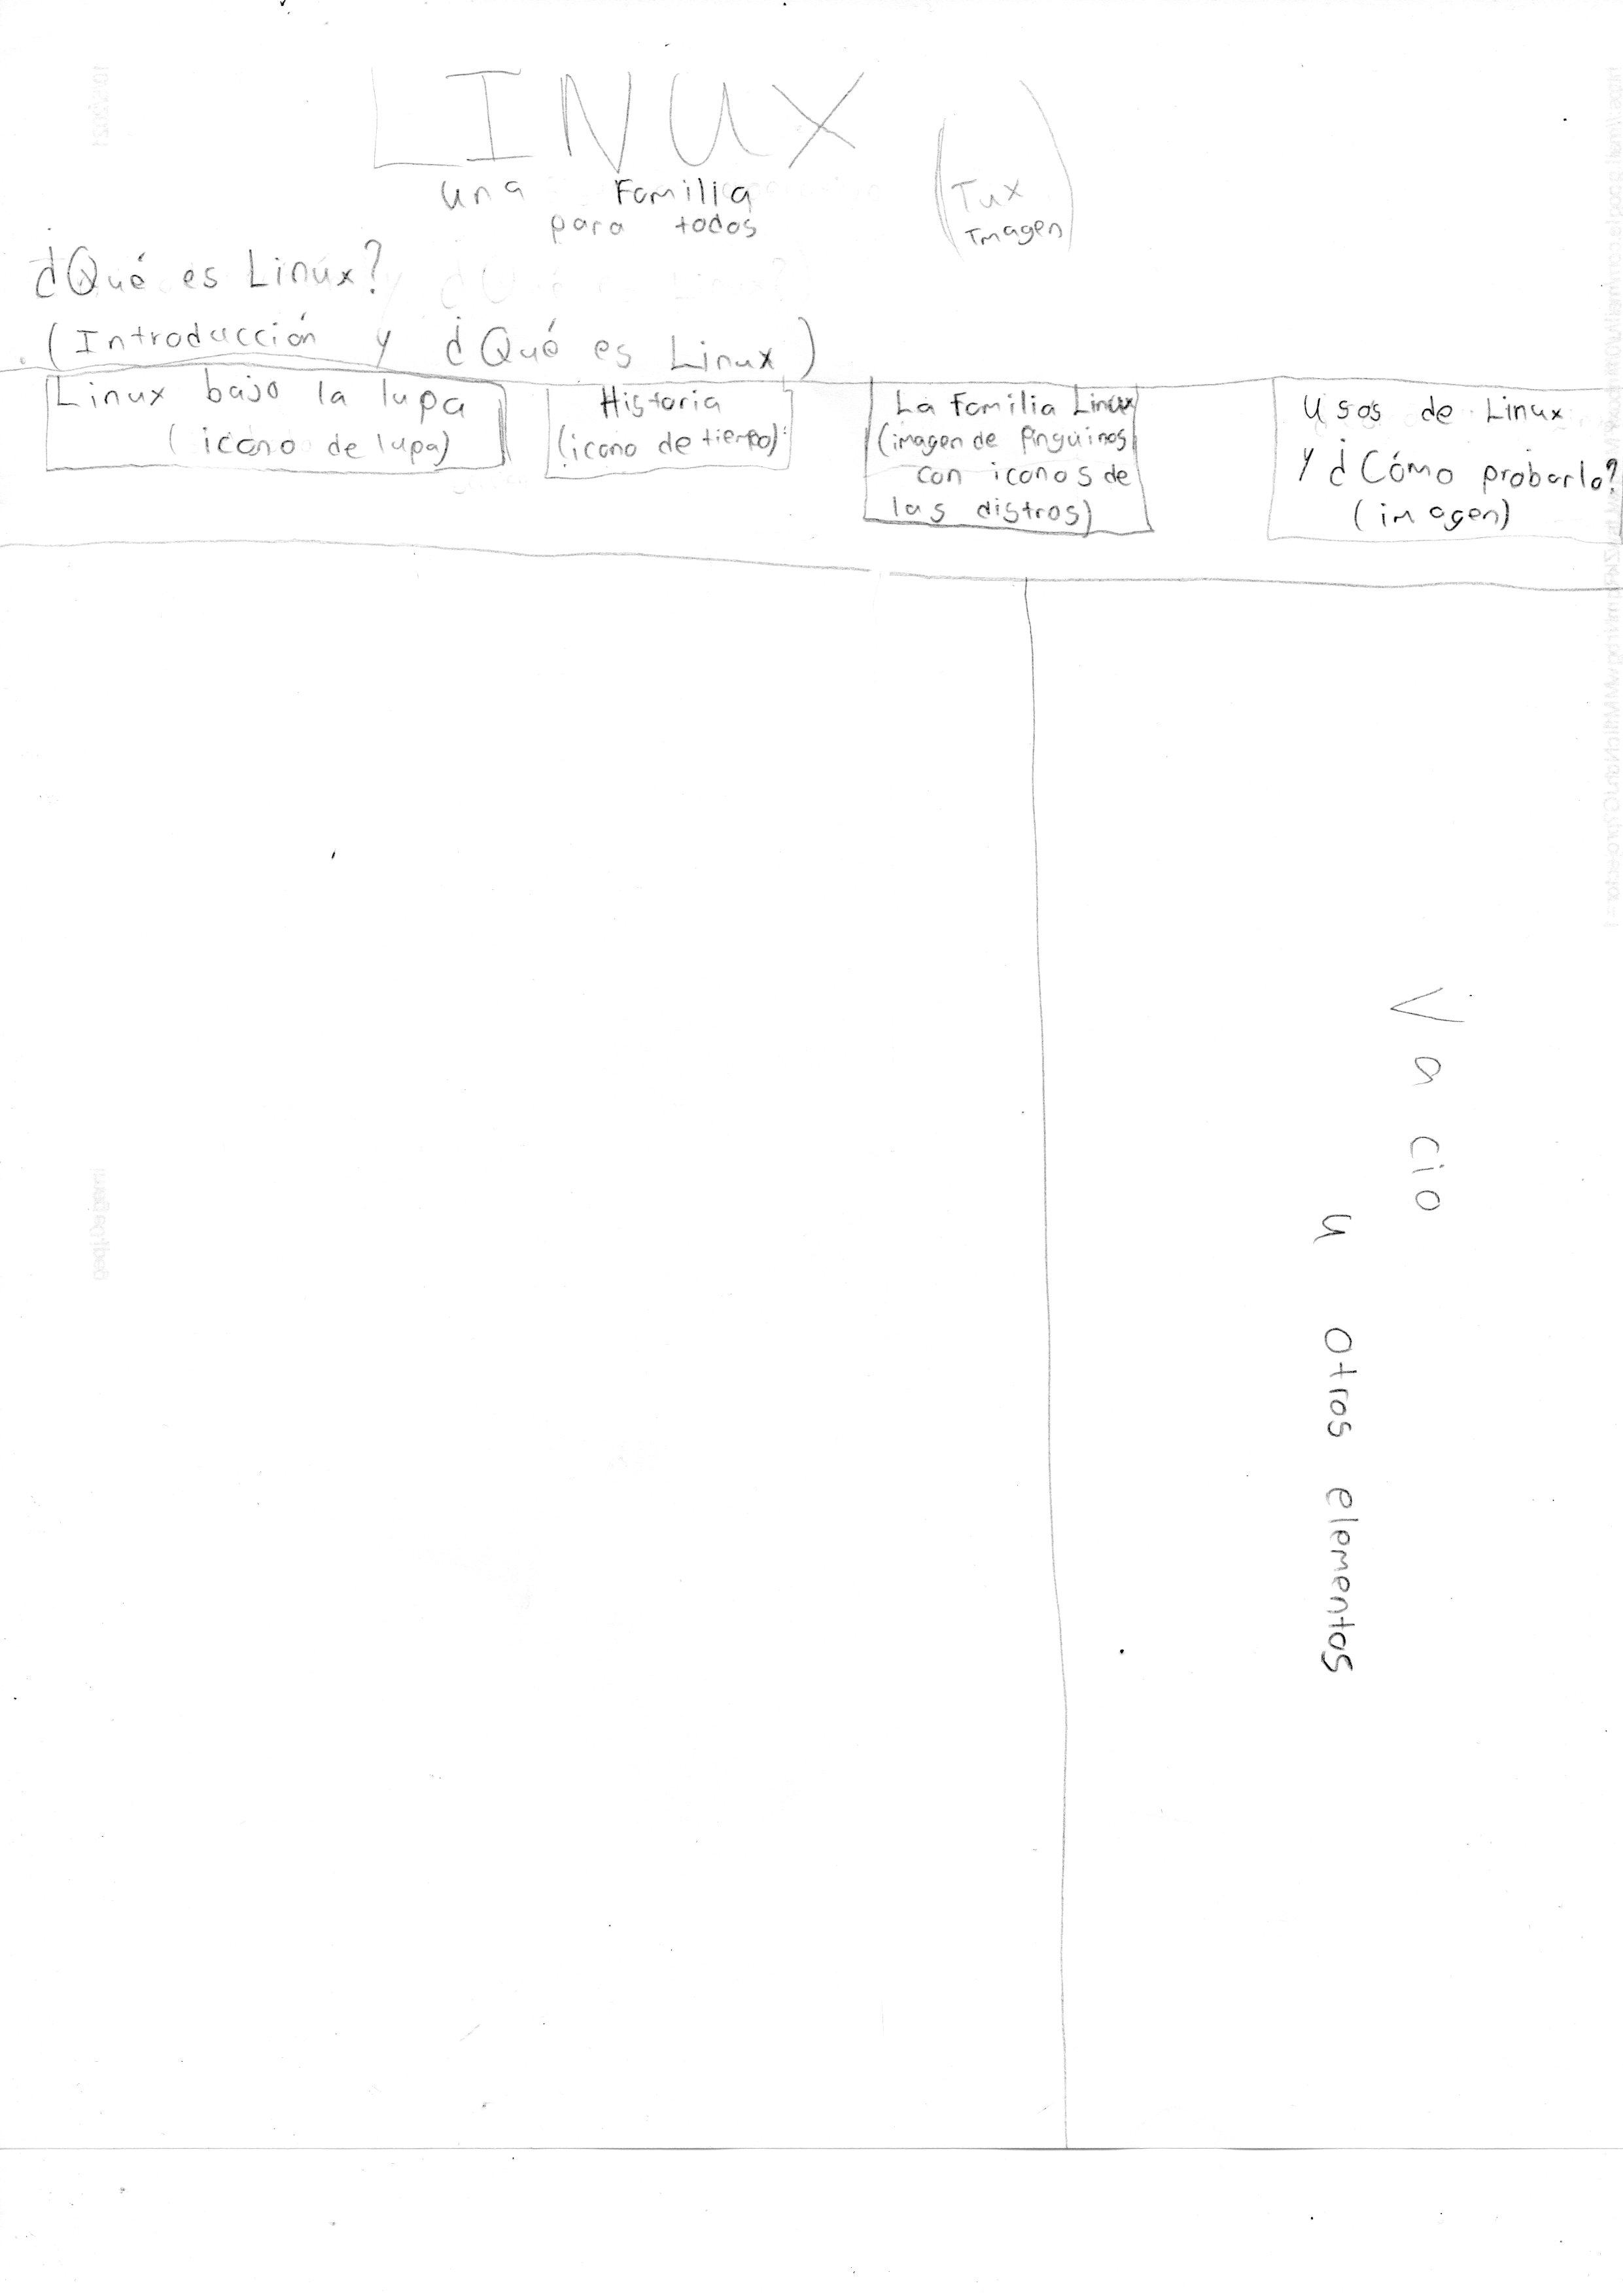 LINUX
una Familia
para todos
(Tux
Imagen)
¿Qué es Linux?
(Introducción y ¿Qué es Linux)
Linux bajo la lupa
(icono de lupa)
Historia
(icono de tiempo)
La Familia Linux
(imagen de pingüinos
con iconos de
las distros)
Usos de Linux
y ¿Cómo probarlo?
(imagen)
Vacio
u otros elementos
10/5/2021
image.jpeg